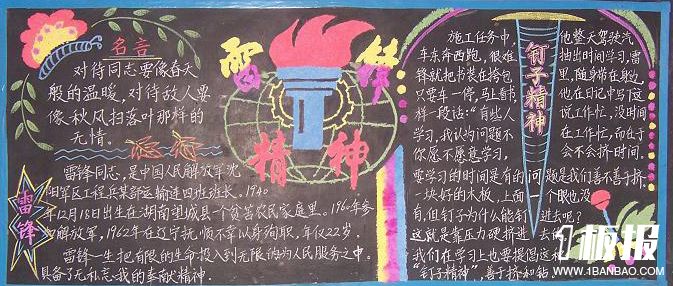 名言
对待同志要像春天
般的温暖，对待敌人要
像秋风扫落叶那样的
无情。
雷锋
精神
雷锋
雷锋同志，是中国人民解放军沈
阳军区工程兵某部运输连四班班长。1940
年12月18日出生在湖南望城县一个贫苦农民家庭里。1960年参
加解放军，1962年在辽宁抚顺不幸以身殉职，年仅22岁。
雷锋一生把有限的生命投入到无限的为人民服务之中。
具备了无私忘我的奉献精神。
钉子精神
施工任务中，他整天驾驶汽
车东奔西跑，很难抽出时间学习，雷
锋就把书装在挎包里，随身带在身边，
只要车一停，马上看书，他在日记中写了这
样一段话："有些人说工作忙，没时间
学习，我认为问题不在工作忙，而在于
你愿不愿意学习，会不会挤时间。
要学习的时间是有的问题是我们善不善于挤.
一块好的木板，上面一个眼也没
有，但钉子为什么能钉进去呢？
这就是靠压力硬挤进去的
我们在学习上也要提倡这种
"钉子精神"，善于挤和钻
1板报
WWW.1BANBAO.COM